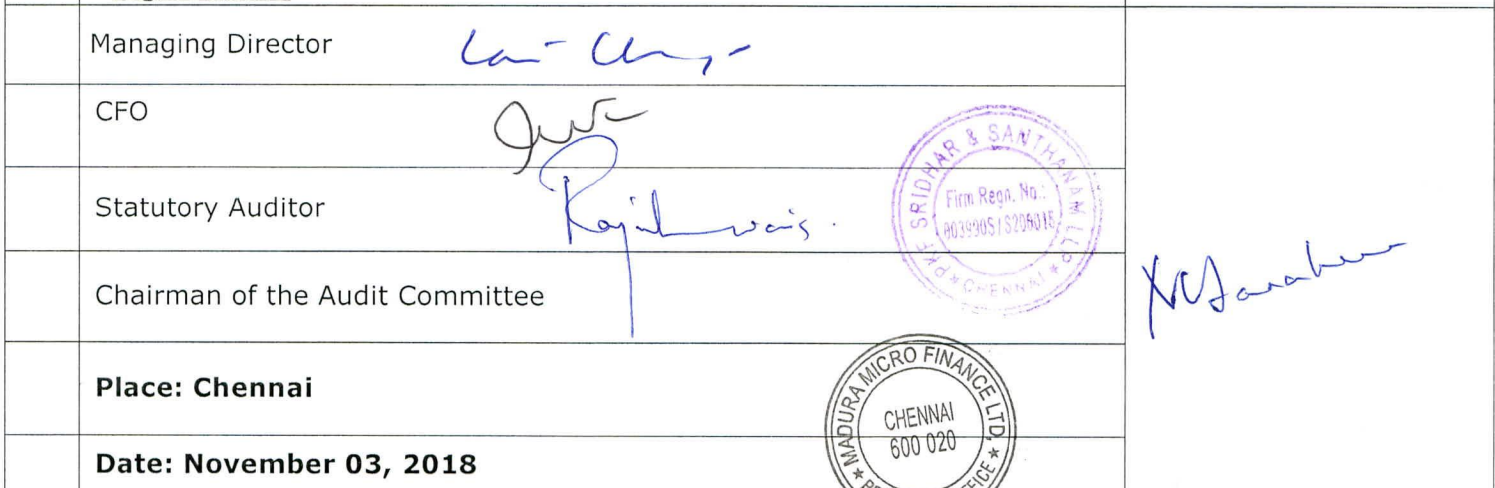 Managing Director
CFO
Statutory Auditor
Chairman of the Audit Committee
Place: Chennai
Date: November 03, 2018
PKF SRIDHAR & SANTHANAM LLP
Firm Regn. No.:
CHENNAI
MADURA MICRO FINANCE LTD,
CHENNAI
600 020